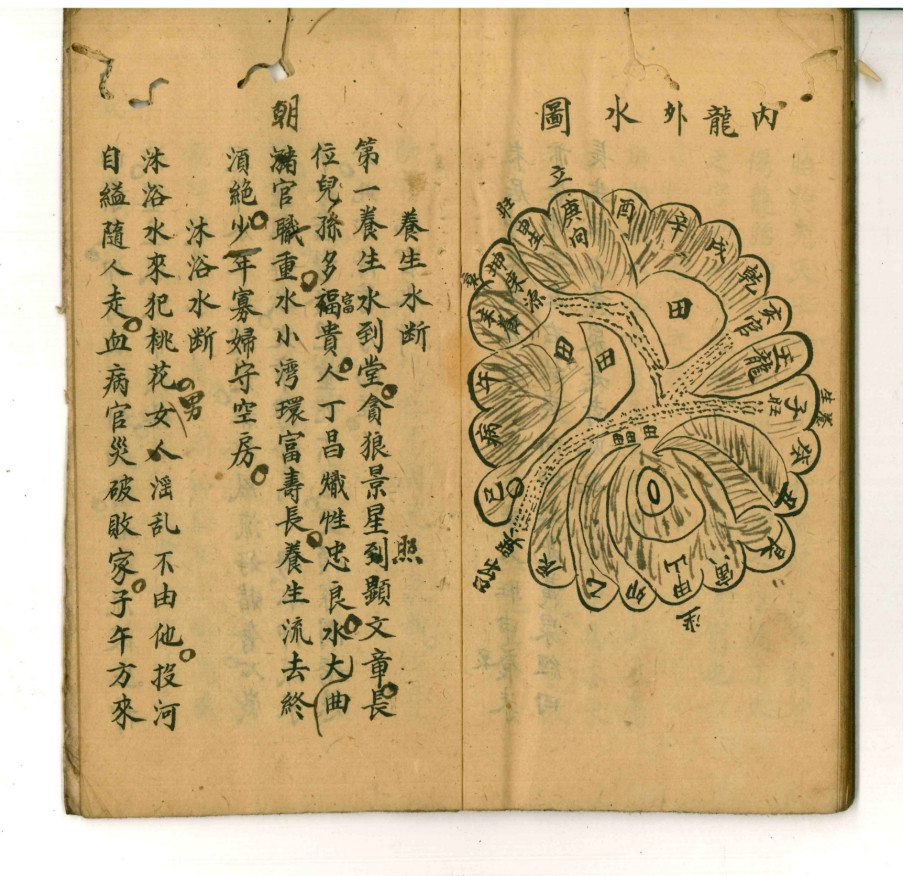 内龍外水圖
立
旺
庚向
酉
辛
戌
乾
亥官
壬龍
子旺
養生
癸
丑
艮
寅
甲山
卯
乙
辰
巳
病
午
坤
田
田
田
田
養生水断
第一養生水到堂貪狼景星到顯文章長
照
位兒孫多福貴人丁昌熾性忠良水大曲
富
朝
官職重水小湾環富壽長養生流去終
湏絶少年寡婦守空房
沐浴水断
男
沐浴水來犯桃花女人淫乱不由他投河
自縊隨人走血病官災破敗家子午方來